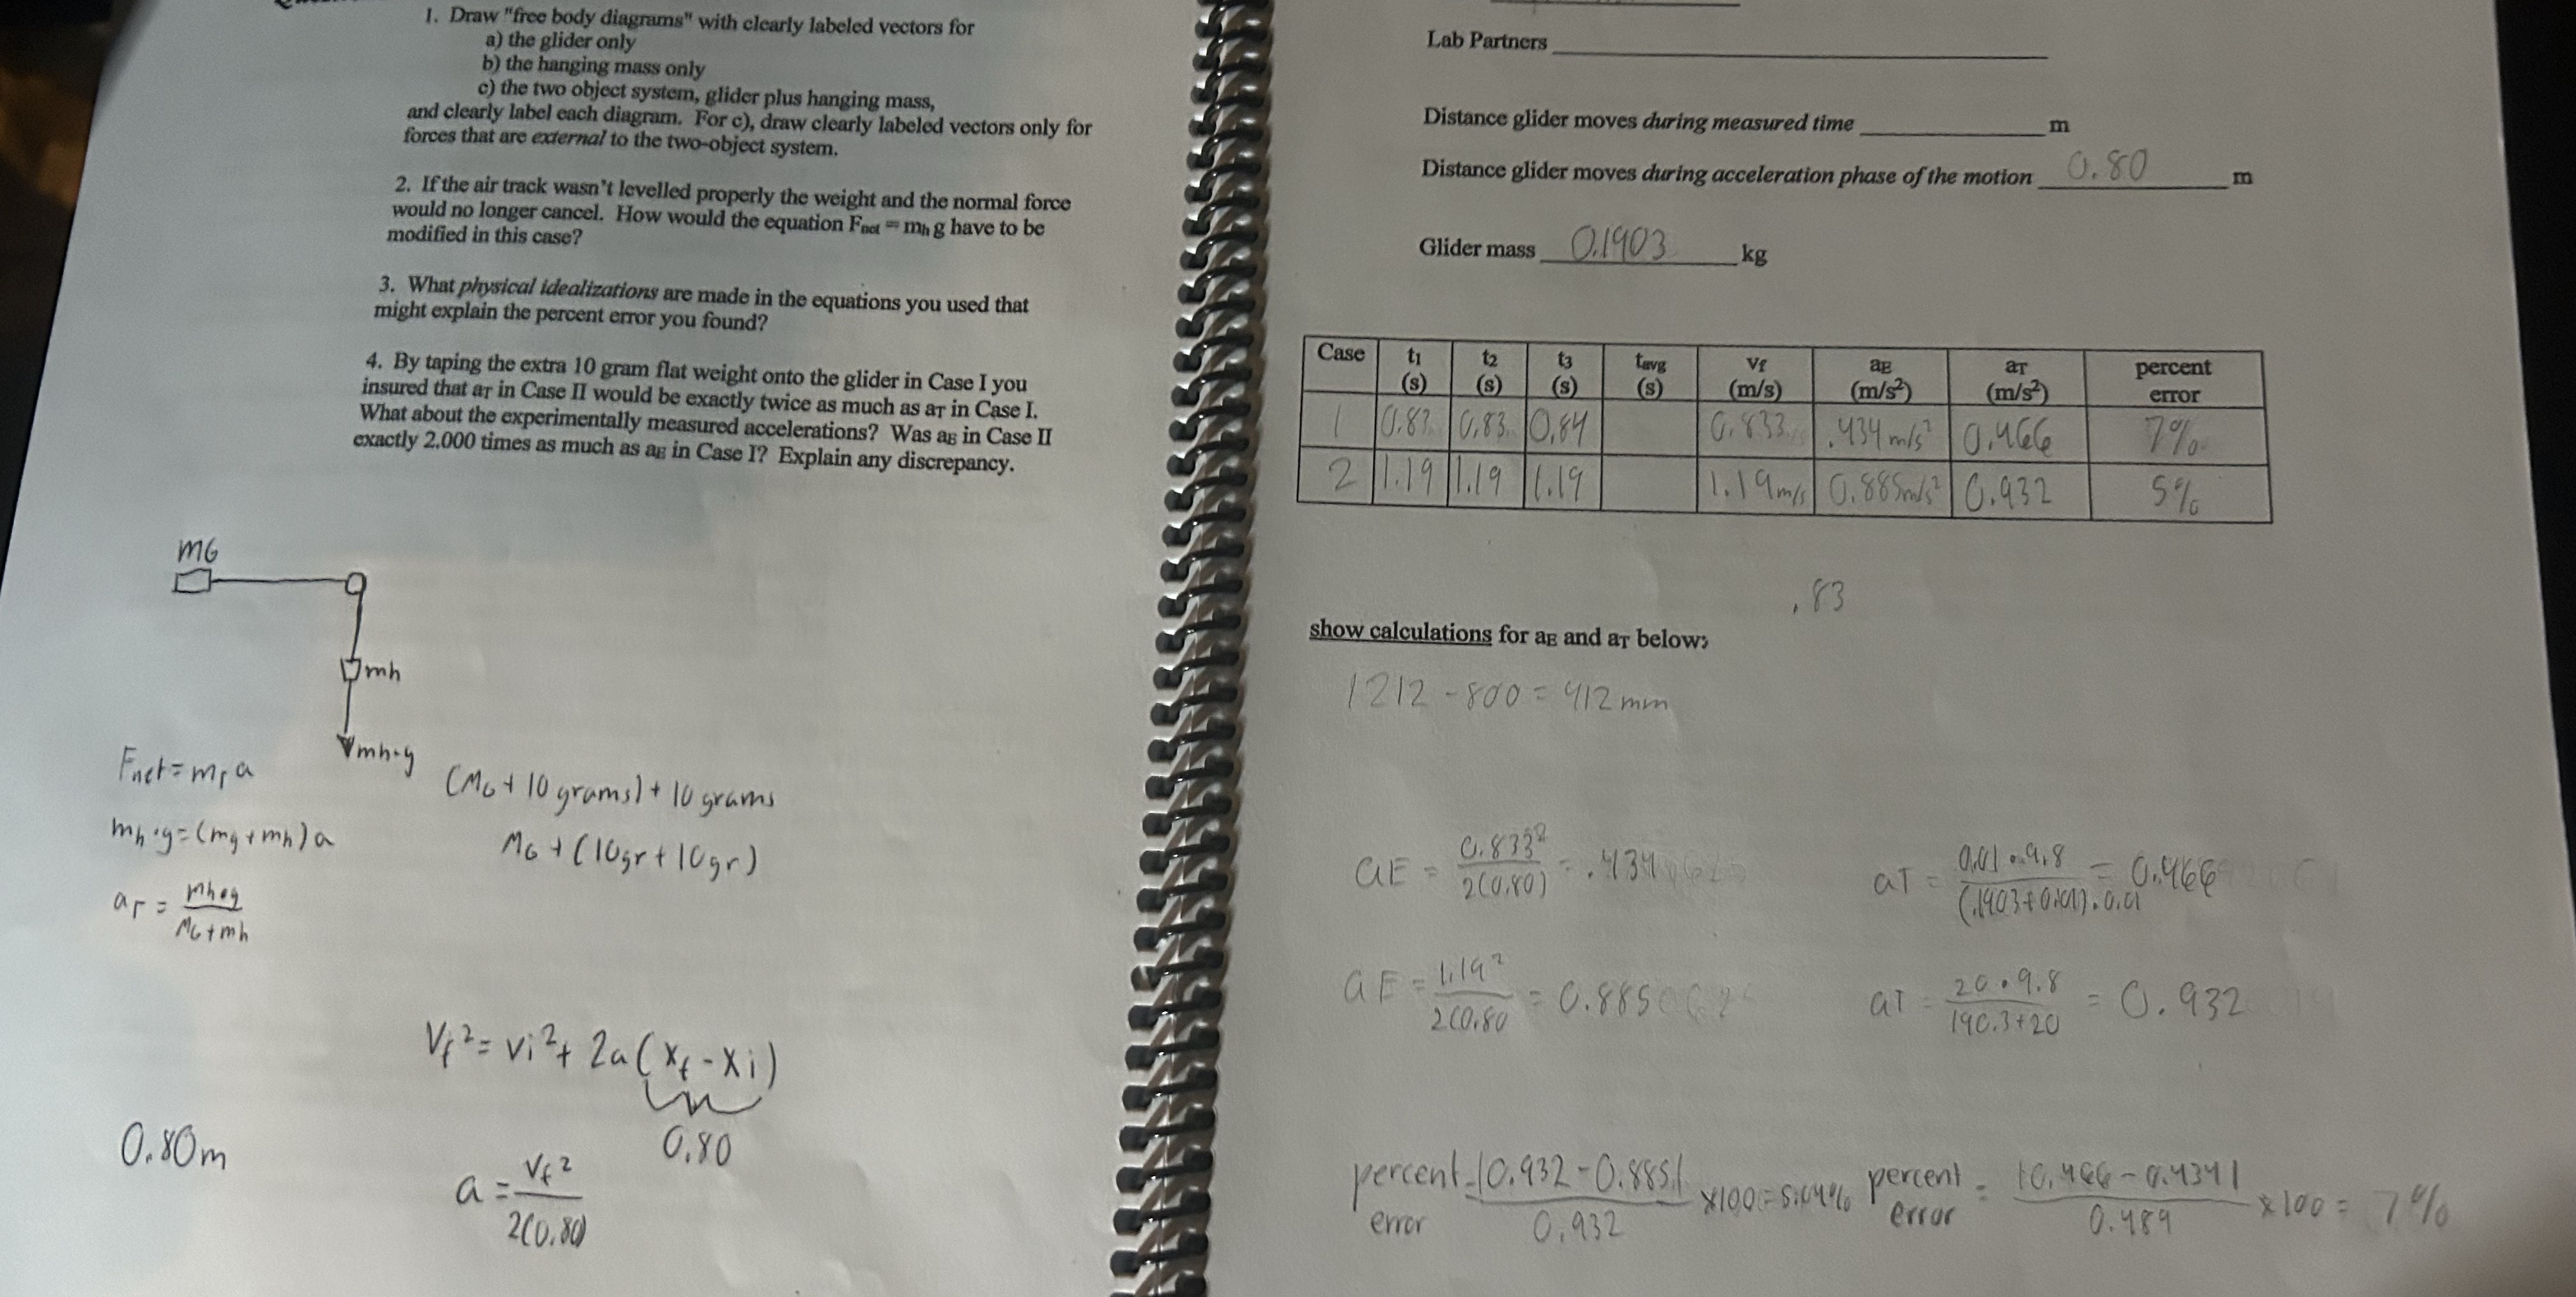 1. Draw "free body diagrams" with clearly labeled vectors for
a) the glider only
b) the hanging mass only
c) the two object system, glider plus hanging mass,
and clearly label each diagram. For c), draw clearly labeled vectors only for
forces that are external to the two-object system.
2. If the air track wasn't levelled properly the weight and the normal force
would no longer cancel. How would the equation Fnet = mh g have to be
modified in this case?
3. What physical idealizations are made in the equations you used that
might explain the percent error you found?
4. By taping the extra 10 gram flat weight onto the glider in Case I you
insured that aT in Case II would be exactly twice as much as aT in Case I.
What about the experimentally measured accelerations? Was aE in Case II
exactly 2.000 times as much as aE in Case I? Explain any discrepancy.
MG
mh
mh·g
Fnet = mT a
mh·g = (mg + mh) a
aT = mh•g / MG + mh
(MG + 10 grams) + 10 grams
MG + (10gr + 10gr)
Vf² = vi² + 2a (xf - xi)
0.80
0.80m
a = Vf² / 2(0.80)
Lab Partners
Distance glider moves during measured time m
Distance glider moves during acceleration phase of the motion 0.80 m
Glider mass 0.1903 kg
Case t1 (s) t2 (s) t3 (s) tavg (s) vf (m/s) aE (m/s²) aT (m/s²) percent error
1 0.83 0.83 0.84 0.833 .434 m/s² 0.466 7%
2 1.19 1.19 1.19 1.19 m/s 0.885 m/s² 0.932 5%
.83
show calculations for aE and aT below:
1212 - 800 = 412 mm
aE = 0.833² / 2(0.80) = .434
aT = 0.01 • 9.8 / (.1903 + 0.01) . 0.01 = 0.466
aE = 1.19² / 2(0.80 = 0.885
aT = 20 • 9.8 / 190.3 + 20 = 0.932
percent error = |0.932 - 0.885| / 0.932 ×100 = 5.04%
percent error = |0.466 - 0.434| / 0.489 ×100 = 7%